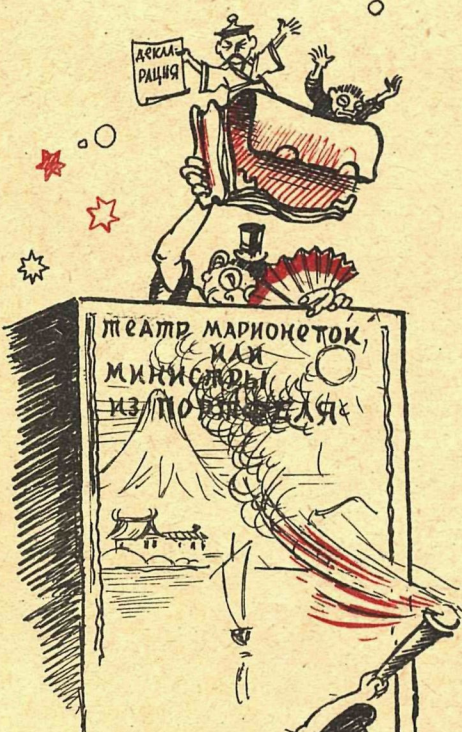 ДЕКЛА-
РАЦИЯ
ТЕАТР МАРИОНЕТОК,
ИЛИ
МИНИСТРЫ
ИЗ ПОРТФЕЛЯ